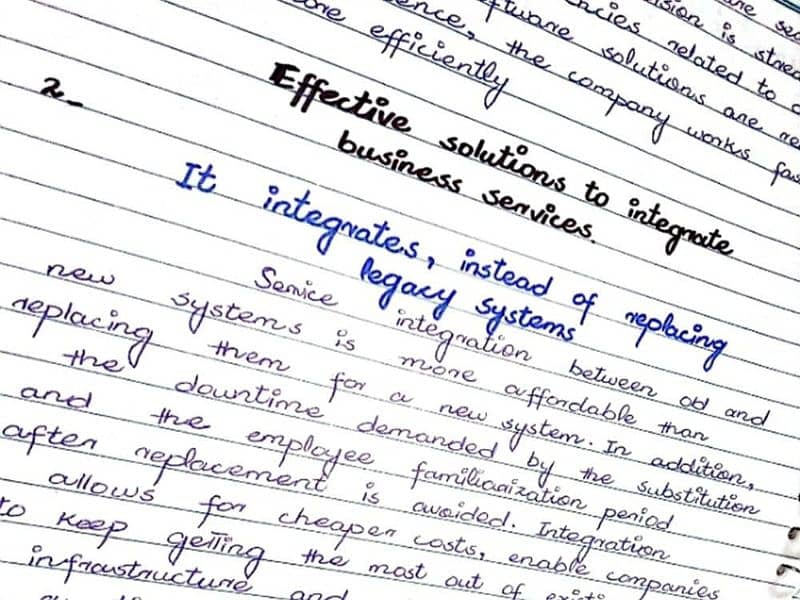 is stored
software solutions are
ence, the company works
efficiently
related to
2_ Effective solutions to integrate
business services.
It integrates, instead of replacing
legacy systems
Service integration between old and
new systems is more affordable than
replacing them for a new system. In addition,
the downtime demanded by the substitution
and the employee familiarization period
after replacement is avoided. Integration
allows for cheaper costs, enable companies
to keep getting the most out of
infraustructure and